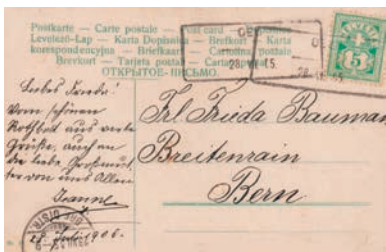 Postkarte — Carte postale — Post card —
Levelező-Lap — Karta Dopisnica — Brefkort — Karta
korespondencyjna — Briefkaart — Cartolina postale
Brevkort — Tarjeta postal — Cartão postal
ОТКРЫТОЕ ПИСЬМО.
5
Liebes Frieda!
Vom schönen
aus viele
Grüße, auch an
die liebe Großmut-
ter von uns Allen
Jeanne
Juli 1906.
Frl Frieda Bauman
Breitenrain
Bern